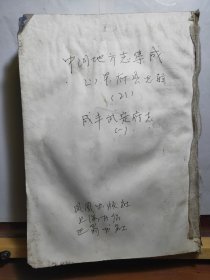 中国地方志集成
·山东府县志辑
(21)
咸丰武定府志
(一)
凤凰出版社
上海书店
巴蜀书社